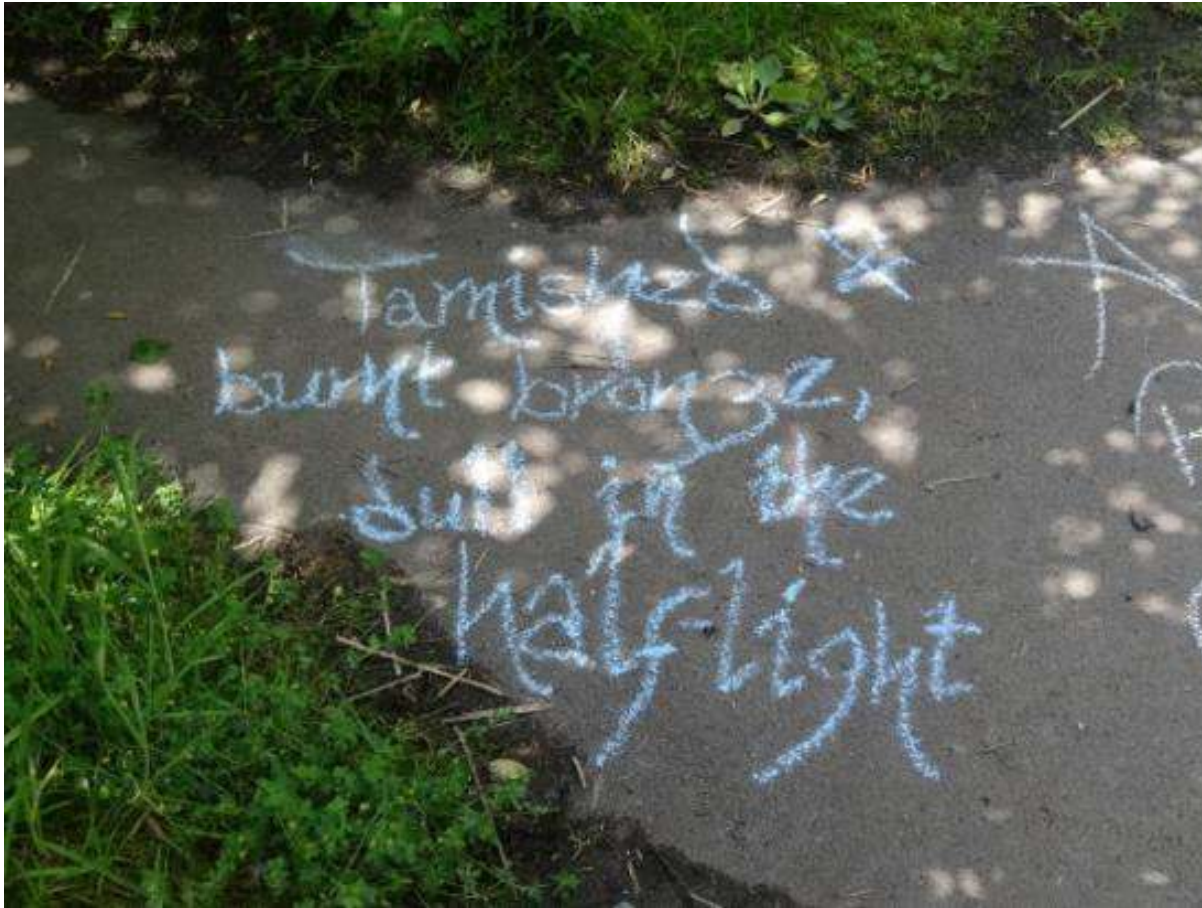 Tarnished &
burnt bronze,
dull in the
half-light